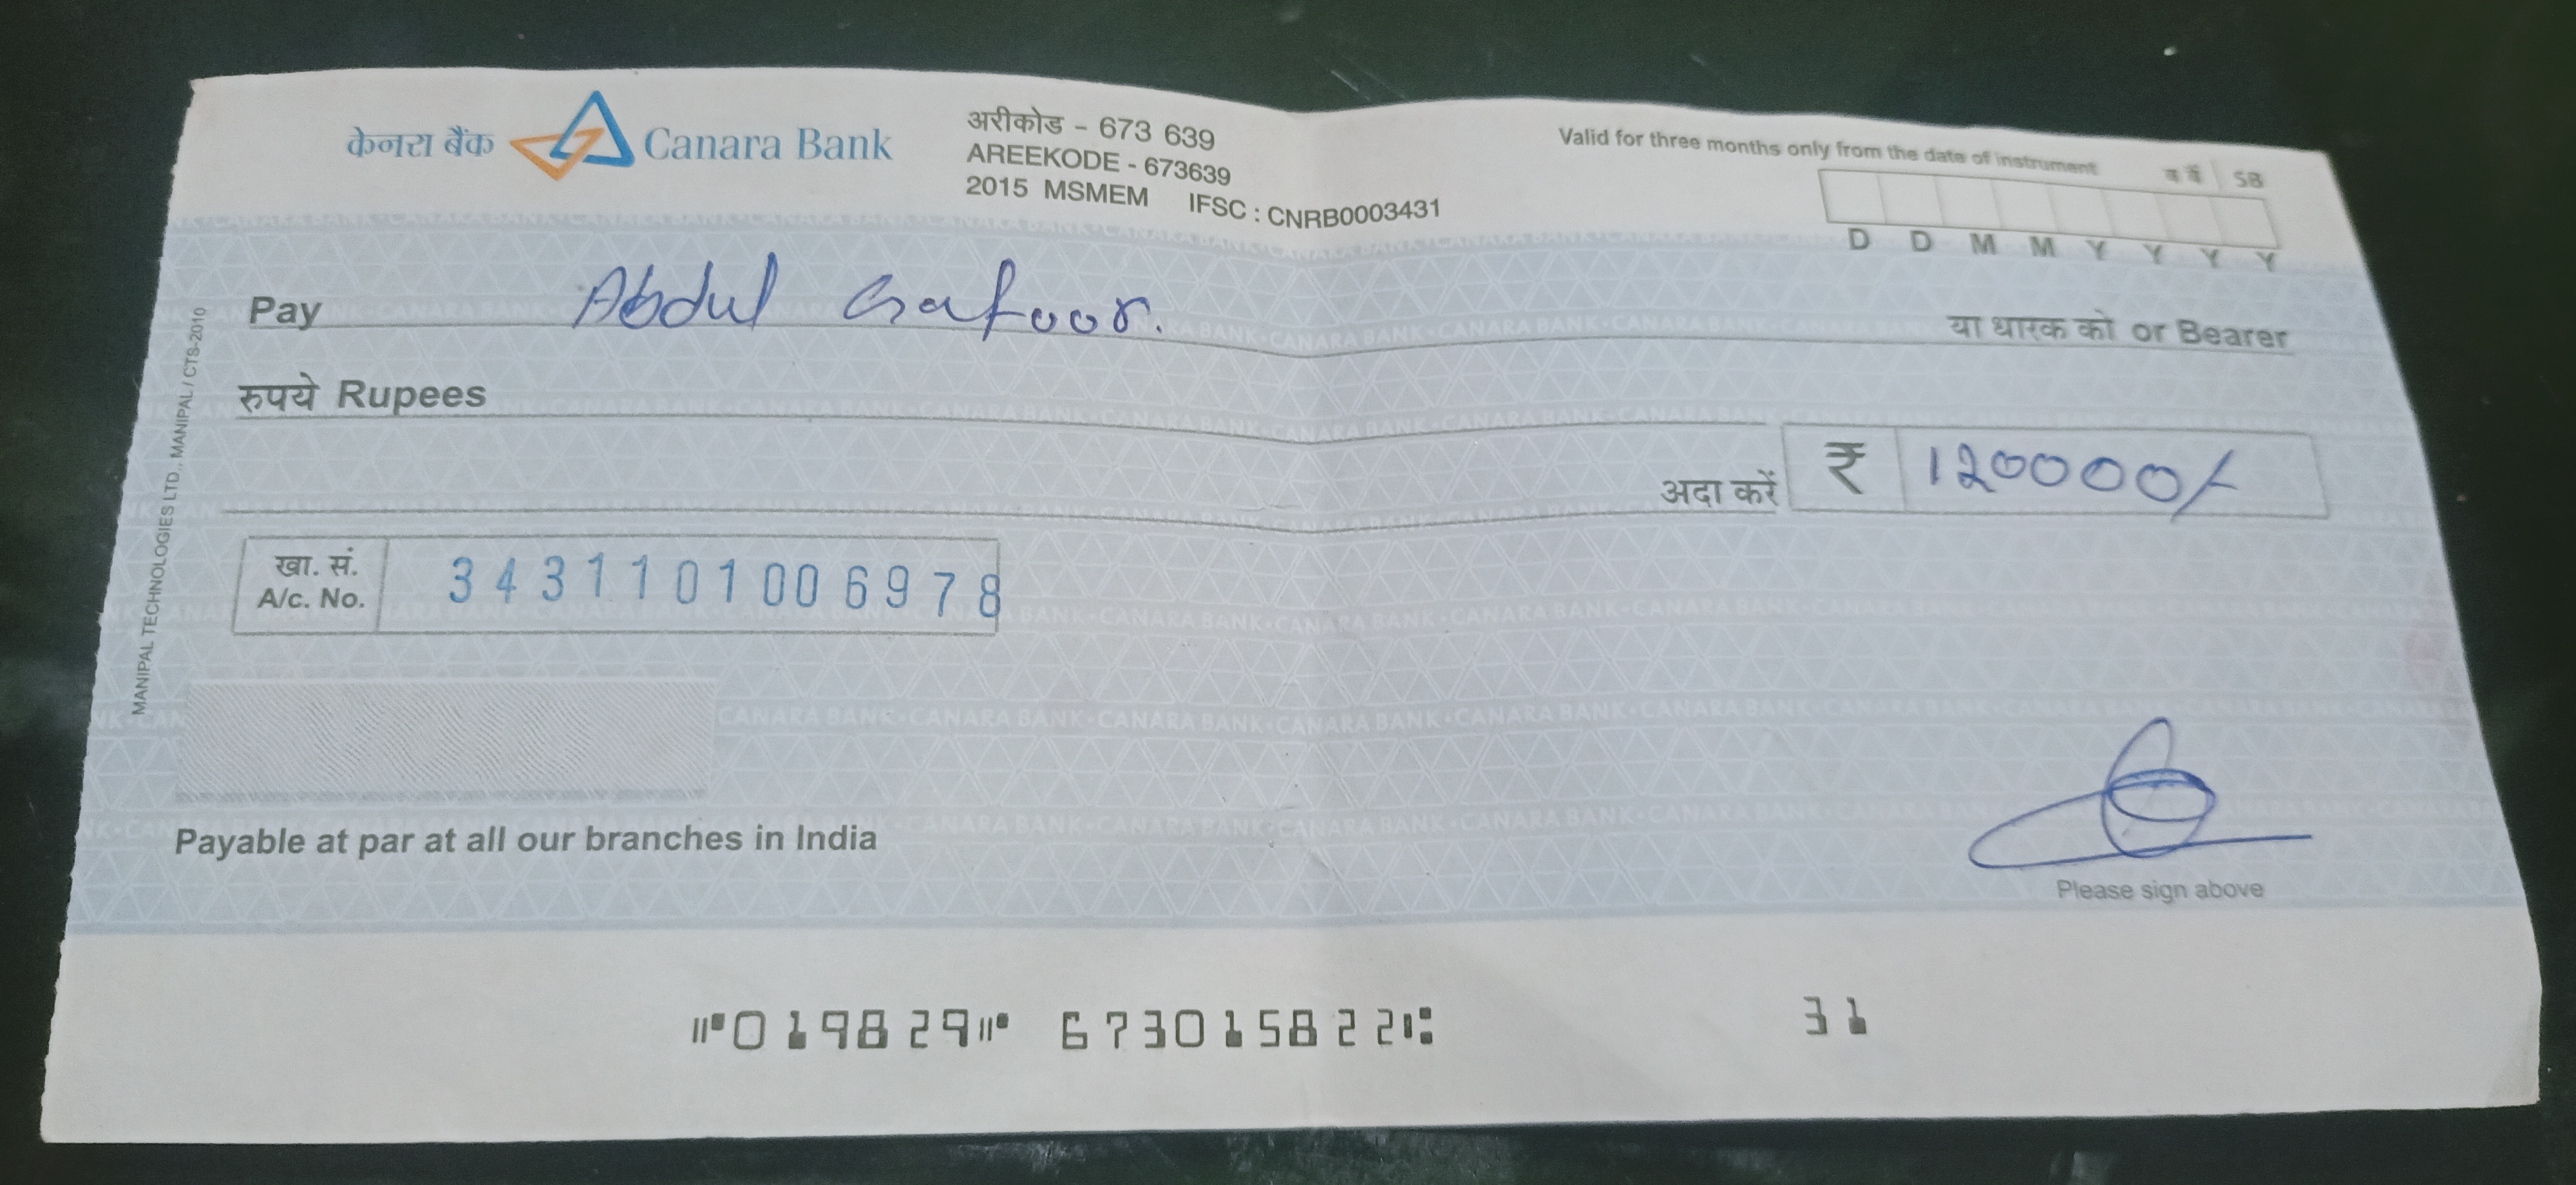 केनरा बैंक Canara Bank
अरीकोड - 673 639
AREEKODE - 673639
2015 MSMEM IFSC : CNRB0003431
Valid for three months only from the date of instrument
SB
D D M M Y Y Y Y
Pay Abdul Gafoor. या धारक को or Bearer
रुपये Rupees
अदा करें ₹ 120000/-
खा. सं.
A/c. No. 3431101006978
MANIPAL TECHNOLOGIES LTD., MANIPAL / CTS-2010
CANARA BANK·CANARA BANK·CANARA BANK·CANARA BANK
Payable at par at all our branches in India
Please sign above
⑈019829⑈ 673015822⑆ 31